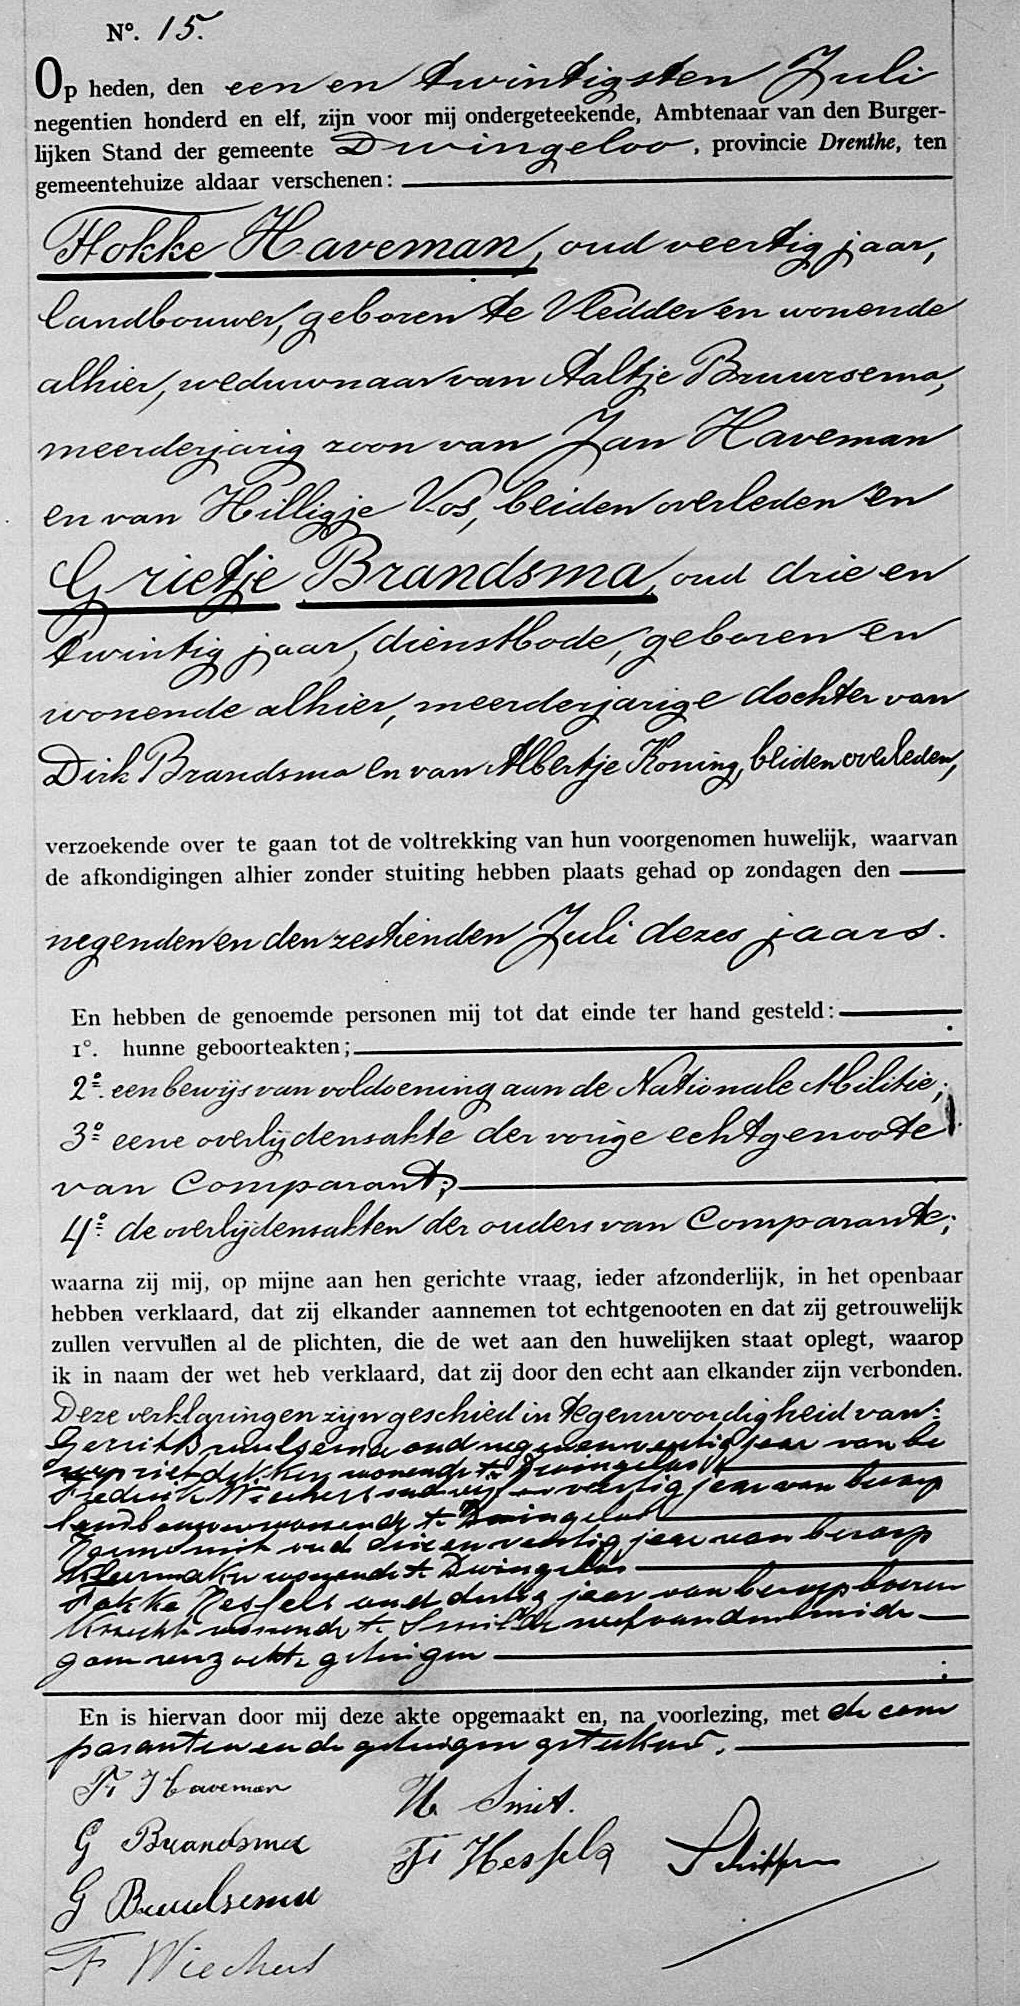 No. 15.
Op heden, den een en twintigsten Juli
negentien honderd en elf, zijn voor mij ondergeteekende, Ambtenaar van den Burger-
lijken Stand der gemeente Dwingeloo, provincie Drenthe, ten
gemeentehuize aldaar verschenen:
Fokke Haveman, oud veertig jaar,
landbouwer, geboren te Vledder en wonende
alhier, weduwnaar van Aaltje Bruursema,
meerderjarig zoon van Jan Haveman
en van Hilligje Vos, beiden overleden en
Grietje Brandsma, oud drie en
twintig jaar, dienstbode, geboren en
wonende alhier, meerderjarige dochter van
Dirk Brandsma en van Albertje Koning, beiden overleden,
verzoekende over te gaan tot de voltrekking van hun voorgenomen huwelijk, waarvan
de afkondigingen alhier zonder stuiting hebben plaats gehad op zondagen den
negenden en den zestienden Juli dezes jaars.
En hebben de genoemde personen mij tot dat einde ter hand gesteld:
1°. hunne geboorteakten;
2°. een bewijs van voldoening aan de Nationale Militie;
3° eene overlijdensakte der vorige echtgenoote
van Comparant;
4° de overlijdensakten der ouders van Comparante;
waarna zij mij, op mijne aan hen gerichte vraag, ieder afzonderlijk, in het openbaar
hebben verklaard, dat zij elkander aannemen tot echtgenooten en dat zij getrouwelijk
zullen vervullen al de plichten, die de wet aan den huwelijken staat oplegt, waarop
ik in naam der wet heb verklaard, dat zij door den echt aan elkander zijn verbonden.
Deze verklaringen zijn geschied in tegenwoordigheid van:
Gerrit Bruulsema oud negen en veertig jaar van be
roep rietdekker wonende te Dwingeloo
Frederik Wiechers oud vijf en veertig jaar van beroep
landbouwer wonende te Dwingeloo
Smit oud drie en veertig jaar van beroep
kleermaker wonende te Dwingeloo
Fokke Hessels oud dertig jaar van beroep boeren
knecht wonende te Smilde neef van den bruide
gom verzochte getuigen
En is hiervan door mij deze akte opgemaakt en, na voorlezing, met de com
paranten en de getuigen geteekend.
F. Haveman
H. Smit.
G Brandsma
F. Hessels
G Bruulsema
F Wiechers